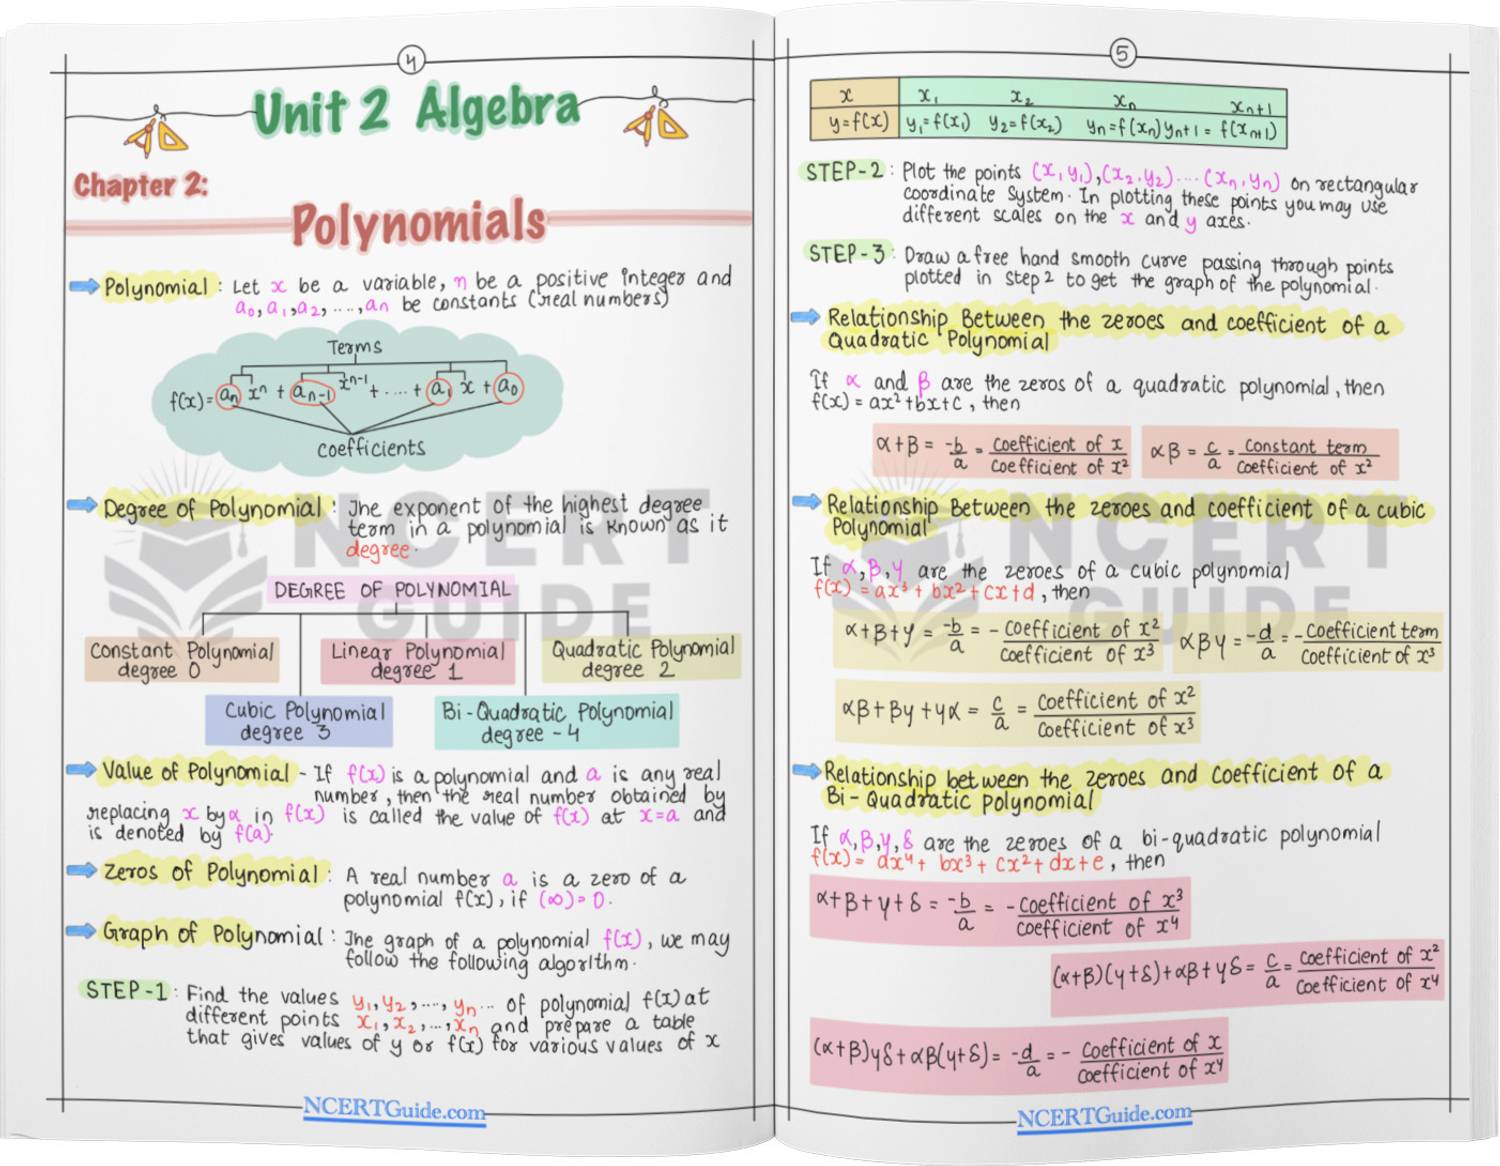 4
Unit 2 Algebra
Chapter 2:
Polynomials
Polynomial : Let x be a variable, n be a positive integer and
a₀, a₁, a₂, ...., aₙ be constants (real numbers)
Terms
f(x) = aₙ xⁿ + aₙ₋₁ xⁿ⁻¹ + .... + a₁ x + a₀
coefficients
Degree of Polynomial : The exponent of the highest degree
term in a polynomial is known as it
degree.
DEGREE OF POLYNOMIAL
Constant Polynomial
degree 0
Linear Polynomial
degree 1
Quadratic Polynomial
degree 2
Cubic Polynomial
degree 3
Bi-Quadratic Polynomial
degree - 4
Value of Polynomial - If f(x) is a polynomial and a is any real
number, then the real number obtained by
replacing x by α in f(x) is called the value of f(x) at x=a and
is denoted by f(a)
Zeros of Polynomial : A real number a is a zero of a
polynomial f(x), if (∞) = 0.
Graph of Polynomial : The graph of a polynomial f(x), we may
follow the following algorithm.
STEP-1 : Find the values y₁, y₂, ...., yₙ... of polynomial f(x) at
different points x₁, x₂, ..., xₙ and prepare a table
that gives values of y or f(x) for various values of x
NCERTGuide.com
5
x x₁ x₂ xₙ xₙ₊₁
y=f(x) y₁=f(x₁) y₂=f(x₂) yₙ=f(xₙ) yₙ₊₁ = f(xₙ₊₁)
STEP-2 : Plot the points (x₁y₁), (x₂.y₂) .... (xₙ, yₙ) on rectangular
coordinate system. In plotting these points you may use
different scales on the x and y axes.
STEP-3 : Draw a free hand smooth curve passing through points
plotted in step 2 to get the graph of the polynomial.
Relationship Between the zeroes and coefficient of a
Quadratic Polynomial
If α and β are the zeros of a quadratic polynomial, then
f(x) = ax²+bx+c, then
α+β = -b/a = coefficient of x/coefficient of x²
αβ = c/a = constant term/coefficient of x²
Relationship Between the zeroes and coefficient of a cubic
Polynomial
If α, β, γ are the zeroes of a cubic polynomial
f(x) = ax³ + bx² + cx + d, then
α+β+γ = -b/a = - coefficient of x²/coefficient of x³
αβγ = -d/a = - coefficient term/coefficient of x³
αβ + βγ + γα = c/a = coefficient of x²/coefficient of x³
Relationship between the zeroes and coefficient of a
Bi-Quadratic polynomial
If α, β, γ, δ are the zeroes of a bi-quadratic polynomial
f(x) = ax⁴ + bx³ + cx² + dx + e, then
α+β+γ+δ = -b/a = - coefficient of x³/coefficient of x⁴
(α+β)(γ+δ)+αβ+γδ = c/a = coefficient of x²/coefficient of x⁴
(α+β)γδ + αβ(γ+δ) = -d/a = - coefficient of x/coefficient of x⁴
NCERTGuide.com
NCERT
GUIDE
NCERT
GUIDE